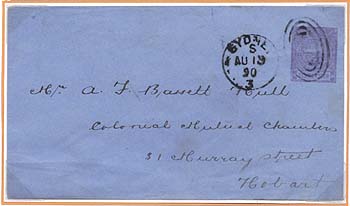 SYDNEY
S
AU 13
90
3
Mr A. F. Bassett Hull
Colonial Mutual Chambers
31 Murray street
Hobart